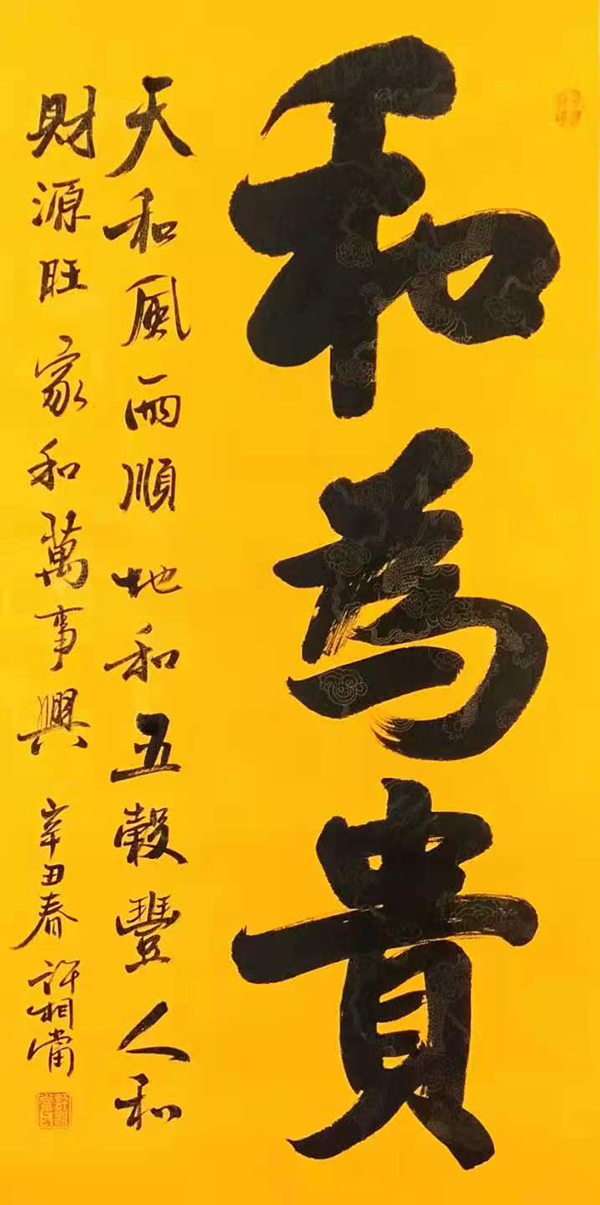 和為貴
天和風雨順地和五穀豐人和
財源旺家和萬事興辛丑春許相當